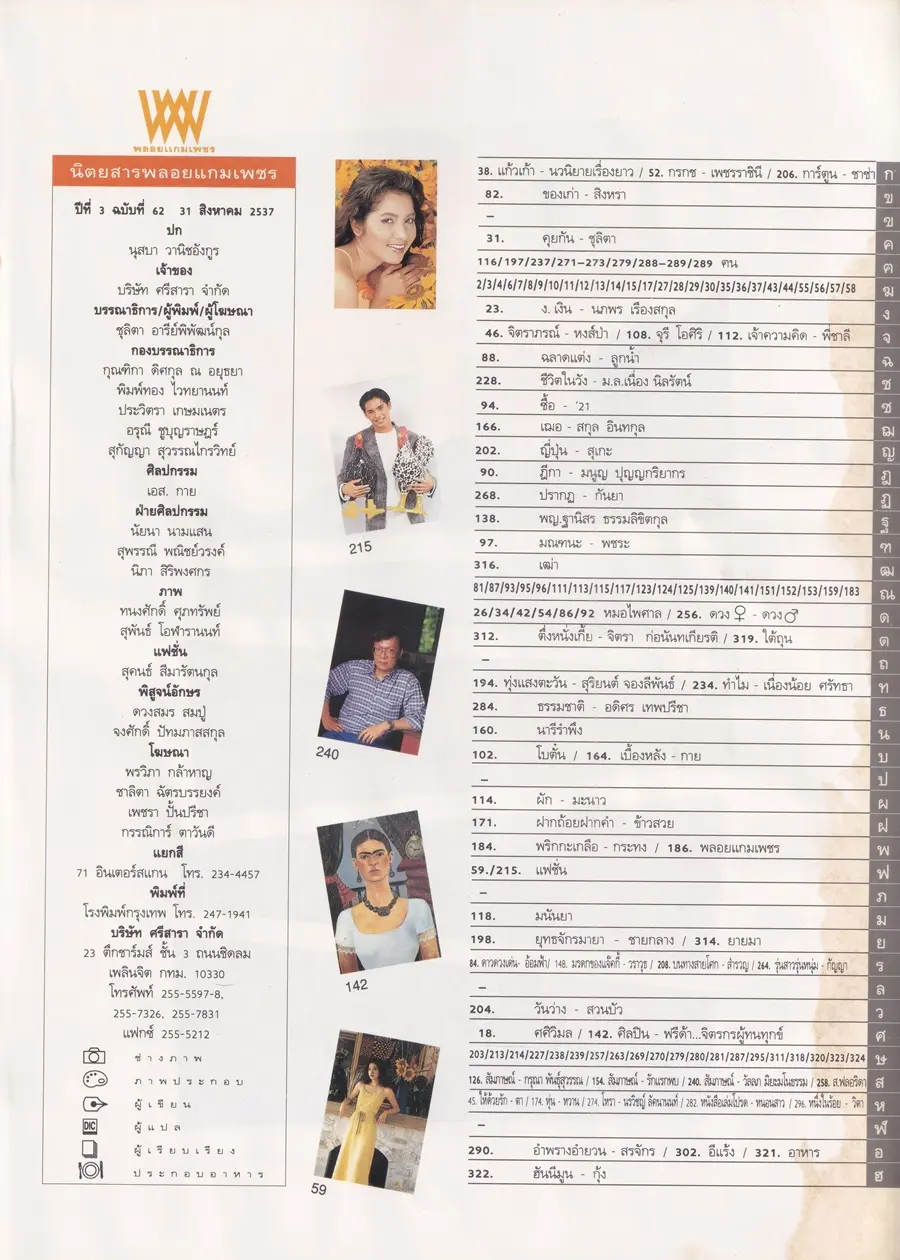 พลอยแกมเพชร
นิตยสารพลอยแกมเพชร
ปีที่ 3 ฉบับที่ 62 31 สิงหาคม 2537
ปก
นุสบา วานิชอังกูร
เจ้าของ
บริษัท ศรีสารา จำกัด
บรรณาธิการ/ผู้พิมพ์/ผู้โฆษณา
ชุลิตา อารีย์พิพัฒน์กุล
กองบรรณาธิการ
กุณฑิกา ดิศกุล ณ อยุธยา
พิมพ์ทอง ไวทยานนท์
ประวิตรา เกษมเนตร
อรุณี ชูบุญราษฎร์
สุกัญญา สุวรรณไกรวิทย์
ศิลปกรรม
เอส. กาย
ฝ่ายศิลปกรรม
นัยนา นามแสน
สุพรรณี พณิชย์วรงค์
นิภา สิริพงศกร
ภาพ
ทนงศักดิ์ ศุภทรัพย์
สุพันธ์ โอฬารานนท์
แฟชั่น
สุคนธ์ สีมารัตนกุล
พิสูจน์อักษร
ดวงสมร สมปู่
จงศักดิ์ ปัทมภาสสกุล
โฆษณา
พรวิภา กล้าหาญ
ชาลิตา ฉัตรบรรยงค์
เพชรา ปั้นปรีชา
กรรณิการ์ ตาวันดี
แยกสี
71 อินเตอร์สแกน โทร. 234-4457
พิมพ์ที่
โรงพิมพ์กรุงเทพ โทร. 247-1941
บริษัท ศรีสารา จำกัด
23 ตึกชาร์มส์ ชั้น 3 ถนนชิดลม
เพลินจิต กทม. 10330
โทรศัพท์ 255-5597-8,
255-7326, 255-7831
แฟกซ์ 255-5212
ช่างภาพ
ภาพประกอบ
ผู้เขียน
DIC ผู้แปล
ผู้เรียบเรียง
ประกอบอาหาร
215
240
142
59
38. แก้วเก้า - นวนิยายเรื่องยาว / 52. กรกช - เพชรราชินี / 206. การ์ตูน - ซาช่า ก
82. ของเก่า - สิงหรา ข
– ฃ
31. คุยกัน - ชุลิตา ค
116/197/237/271-273/279/288-289/289 ฅน ฅ
2/3/4/6/7/8/9/10/11/12/13/14/15/17/27/28/29/30/35/36/37/43/44/55/56/57/58 ฆ
23. ง. เงิน - นภพร เรืองสกุล ง
46. จิตราภรณ์ - หงส์ป่า / 108. จุรี โอศิริ / 112. เจ้าความคิด - พี่ชาลี จ
88. ฉลาดแต่ง - ลูกน้ำ ฉ
228. ชีวิตในวัง - ม.ล.เนื่อง นิลรัตน์ ช
94. ซื้อ - '21 ซ
166. เฌอ - สกุล อินทกุล ฌ
202. ญี่ปุ่น - สุเกะ ญ
90. ฎีกา - มนูญ ปุญญกริยากร ฎ
268. ปรากฏ - กันยา ฏ
138. พญ.ฐานิสร ธรรมลิขิตกุล ฐ
97. มณฑนะ - พชระ ฑ
316. เฒ่า ฒ
81/87/93/95/96/111/113/115/117/123/124/125/139/140/141/151/152/153/159/183 ณ
26/34/42/54/86/92 หมอไพศาล / 256. ดวง♀ - ดวง♂ ด
312. ตึ่งหนั่งเกี้ย - จิตรา ก่อนันทเกียรติ / 319. ใต้ถุน ต
– ถ
194. ทุ่งแสงตะวัน - สุริยนต์ จองลีพันธ์ / 234. ทำไม - เนื่องน้อย ศรัทธา ท
284. ธรรมชาติ - อดิศร เทพปรีชา ธ
160. นารีรำพึง น
102. โบตั๋น / 164. เบื้องหลัง - กาย บ
– ป
114. ผัก - มะนาว ผ
171. ฝากถ้อยฝากคำ - ข้าวสวย ฝ
184. พริกกะเกลือ - กระทง / 186. พลอยแกมเพชร พ
59./215. แฟชั่น ฟ
– ภ
118. มนันยา ม
198. ยุทธจักรมายา - ชายกลาง / 314. ยายมา ย
84. ดาวดวงเด่น- อ้อมฟ้า/ 148. มรดกของแจ๊คกี้ - วราวุธ / 208. บนทางสายโศก - สำรวญ / 264. รุ่นสาวรุ่นหนุ่ม - กัญญา ร
– ล
204. วันว่าง - สวนบัว ว
18. ศศิวิมล / 142. ศิลปิน - ฟรีด้า...จิตรกรผู้ทนทุกข์ ศ
203/213/214/227/238/239/257/263/269/270/279/280/281/287/295/311/318/320/323/324 ษ
126. สัมภาษณ์ - กรุณา พันธุ์สุวรรณ / 154. สัมภาษณ์ - รักแรกพบ / 240. สัมภาษณ์ - วัลลภ มิยะมโนธรรม / 258. ส.ฟลอริดา ส
45. ให้ด้วยรัก - ตา / 174. หุ่น - หวาน / 274. โหรา - นรวิชญ์ ลัคนานนท์ / 282. หนังสือเล่มโปรด - หนอนสาว / 296. หนึ่งในร้อย - วิตา ห
– ฬ
290. อำพรางอำยวน - สรจักร / 302. อีแร้ง / 321. อาหาร อ
322. ฮันนีมูน - กุ้ง ฮ